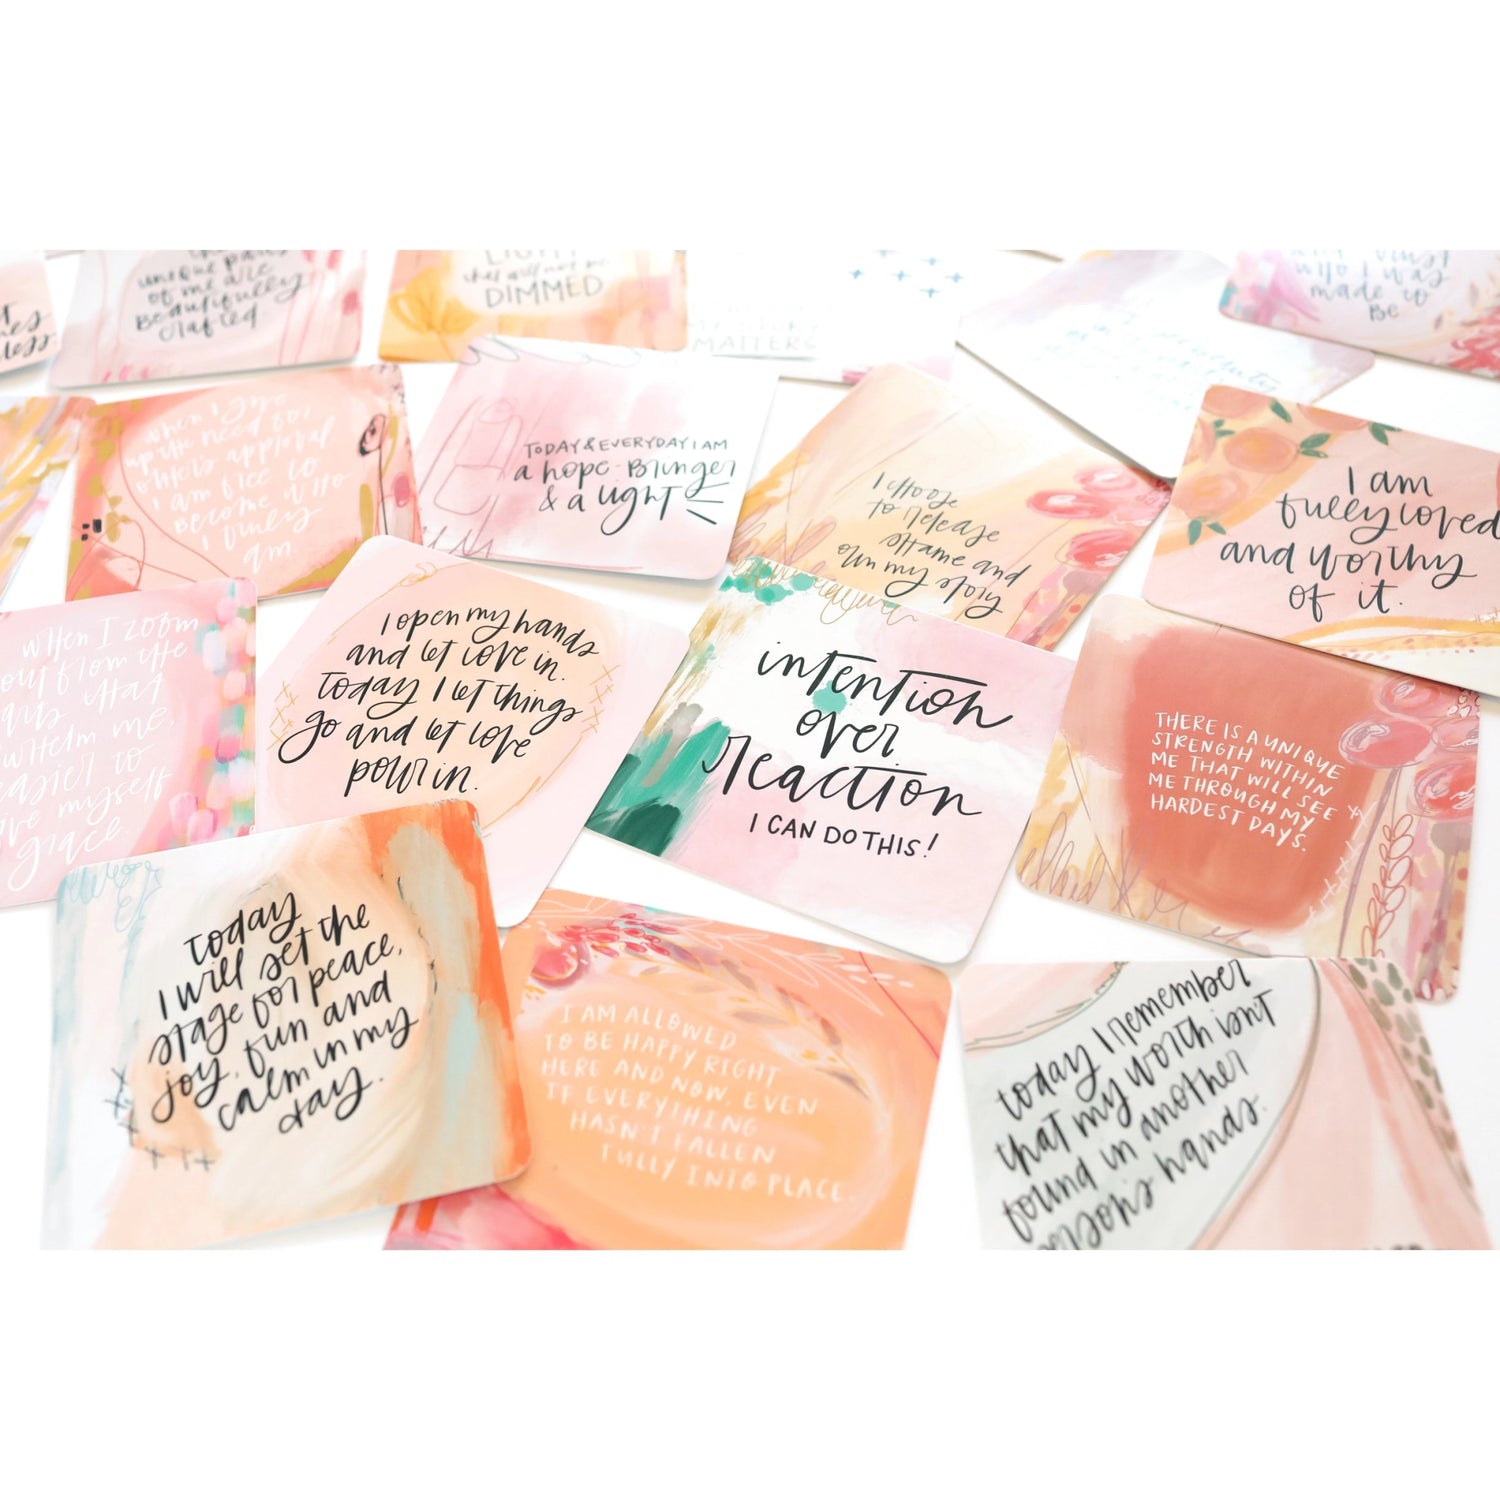 unique parts
of me are
Beautifully
crafted
LIGHT
shall not be
DIMMED
MY STORY
MATTERS
who I was
made to
Be
when I give
up the need for
other's approval,
I am free to
Become who
I truly
am.
TODAY & EVERYDAY I AM
a hope-Bringer
& a light
I choose
to release
shame and
own my story
I am
fully loved
and worthy
of it.
when I zoom
out from the
that
me,
easier to
myself
grace.
I open my hands
and let love in.
today I let things
go and let love
pour in.
intention
over
reaction
I CAN DO THIS!
THERE IS A UNIQUE
STRENGTH WITHIN
ME THAT WILL SEE
ME THROUGH MY
HARDEST DAYS.
today
I will set the
stage for peace,
joy, fun and
calm in my
day.
I AM ALLOWED
TO BE HAPPY RIGHT
HERE AND NOW, EVEN
IF EVERYTHING
HASN'T FALLEN
FULLY INTO PLACE.
today I remember
that my worth isn't
found in another
person's hands.